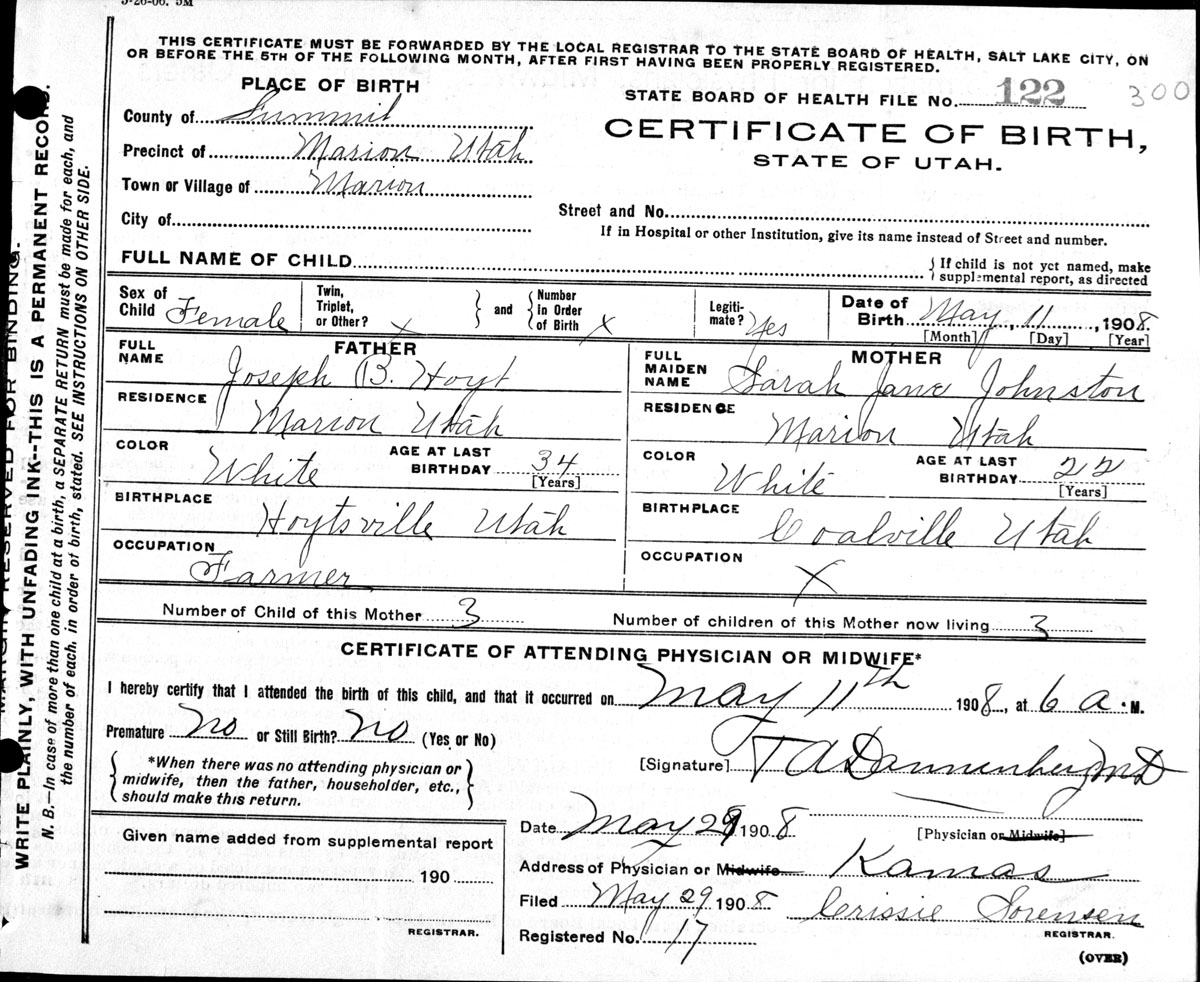 3-26-06. 5M
THIS CERTIFICATE MUST BE FORWARDED BY THE LOCAL REGISTRAR TO THE STATE BOARD OF HEALTH, SALT LAKE CITY, ON
OR BEFORE THE 5TH OF THE FOLLOWING MONTH, AFTER FIRST HAVING BEEN PROPERLY REGISTERED.
PLACE OF BIRTH
STATE BOARD OF HEALTH FILE No. 122 300
County of Summit
CERTIFICATE OF BIRTH,
Precinct of Marion Utah
STATE OF UTAH.
Town or Village of Marion
City of
Street and No.
If in Hospital or other Institution, give its name instead of Street and number.
FULL NAME OF CHILD
{ If child is not yet named, make
supplemental report, as directed
Sex of Child Female
Twin, Triplet, or Other? x } and { Number In Order of Birth x
Legiti-mate? Yes
Date of Birth May, 11, 1908.
[Month] [Day] [Year]
FATHER
FULL NAME Joseph B. Hoyt
MOTHER
FULL MAIDEN NAME Sarah Jane Johnston
RESIDENCE Marion Utah
RESIDENCE Marion Utah
COLOR White AGE AT LAST BIRTHDAY 34 [Years]
COLOR White AGE AT LAST BIRTHDAY 22 [Years]
BIRTHPLACE Hoytsville Utah
BIRTHPLACE Coalville Utah
OCCUPATION Farmer
OCCUPATION X
Number of Child of this Mother 3 Number of children of this Mother now living 3
CERTIFICATE OF ATTENDING PHYSICIAN OR MIDWIFE*
I hereby certify that I attended the birth of this child, and that it occurred on May 11th 1908, at 6 a.M.
Premature no or Still Birth? no (Yes or No)
{ *When there was no attending physician or
midwife, then the father, householder, etc.,
should make this return. }
[Signature] T A Dannenberg MD
Date May 29 1908 [Physician or Midwife]
Given name added from supplemental report
190
REGISTRAR.
Address of Physician or Midwife Kamas
Filed May 29 1908 Crissie Sorensen
REGISTRAR.
Registered No. 17
(OVER)
MARGIN RESERVED FOR BINDING.
WRITE PLAINLY, WITH UNFADING INK--THIS IS A PERMANENT RECORD.
N. B.—In case of more than one child at a birth, a SEPARATE RETURN must be made for each, and
the number of each, in order of birth, stated. SEE INSTRUCTIONS ON OTHER SIDE.